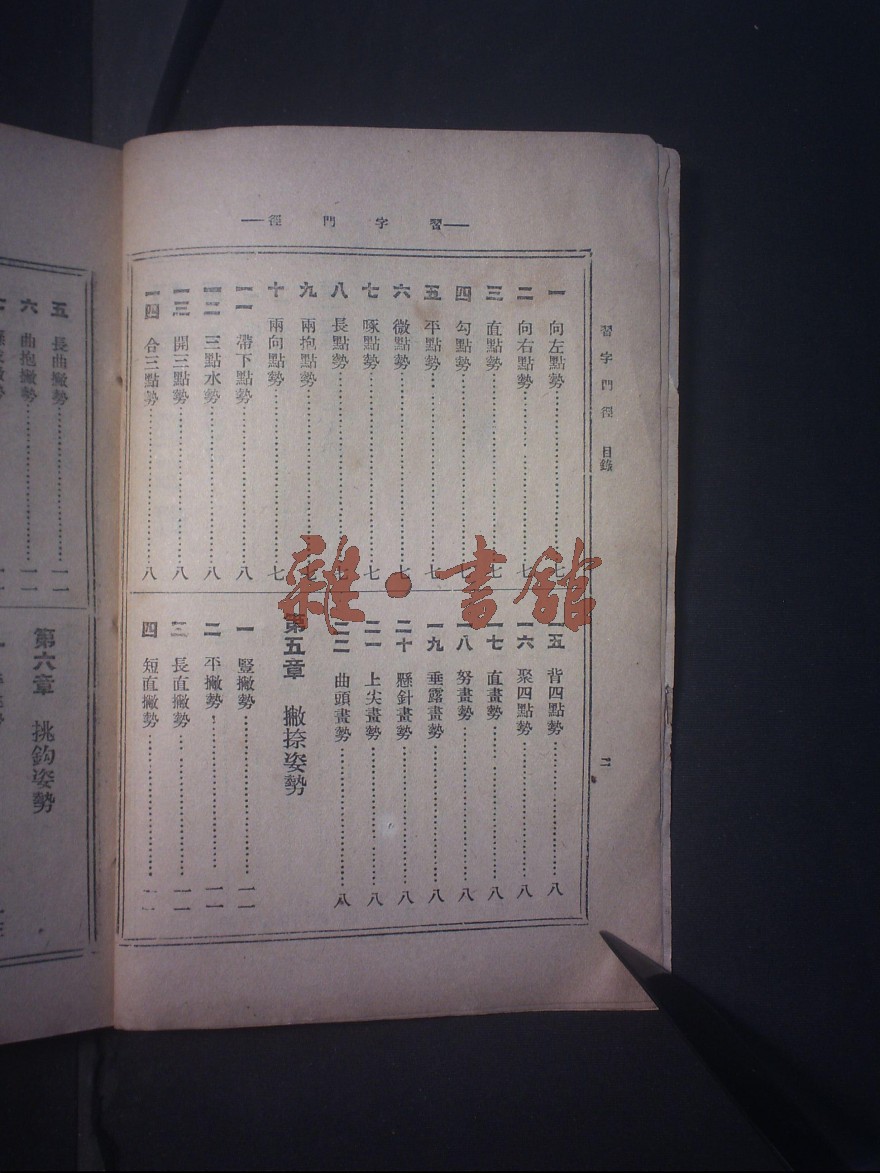 習字門徑
習字門徑 目錄
二
一 向左點勢 七
二 向右點勢 七
三 直點勢 七
四 勾點勢 七
五 平點勢 七
六 微點勢 七
七 啄點勢 七
八 長點勢 七
九 兩抱點勢 七
十 兩向點勢 七
一一 帶下點勢 八
一二 三點水勢 八
一三 開三點勢 八
一四 合三點勢 八
一五 背四點勢 八
一六 聚四點勢 八
一七 直畫勢 八
一八 努畫勢 八
一九 垂露畫勢 八
二十 懸針畫勢 八
二一 上尖畫勢 八
二二 曲頭畫勢 八
第五章 撇捺姿勢
一 豎撇勢 一一
二 平撇勢 一一
三 長直撇勢 一一
四 短直撇勢 一一
五 長曲撇勢 一一
六 曲抱撇勢 一一
第六章 挑鈎姿勢
雜·書館